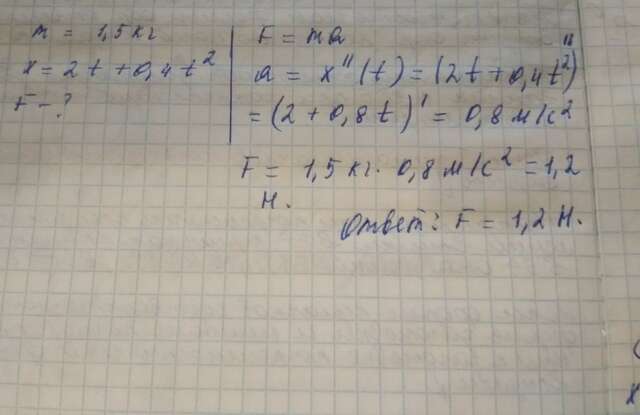 m = 1,5 кг
x = 2t + 0,4t²
F - ?
F = ma
a = x''(t) = (2t + 0,4t²)''
= (2 + 0,8t)' = 0,8 м/с²
F = 1,5 кг · 0,8 м/с² = 1,2
Н.
Ответ: F = 1,2 Н.